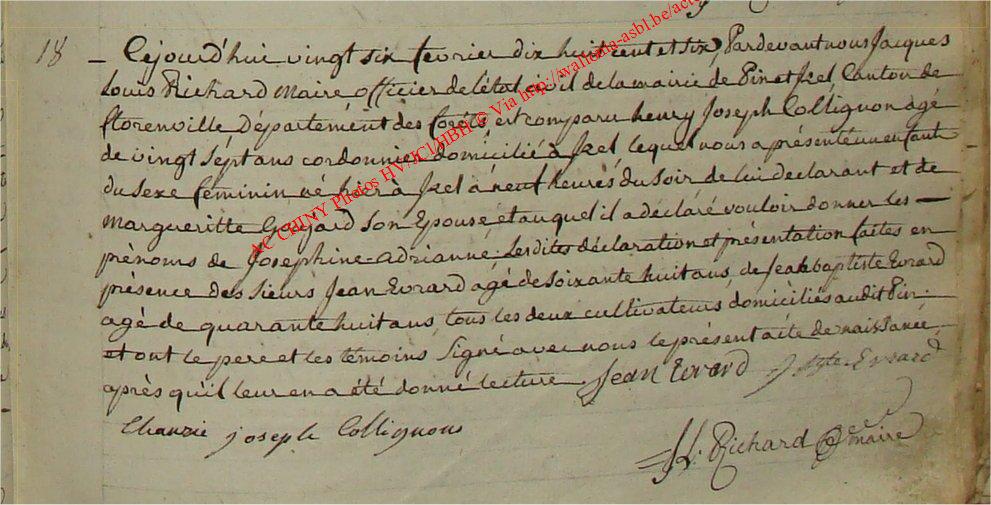 18
Cejourd'hui vingt six fevrier dix huit cent et six, Pardevant nous Jacques
Louis Richard Maire officier de l'état civil de la mairie de Pin et Izel Canton de
florenville Département des forêts, est comparu henry Joseph Collignon agé
de vingt sept ans cordonnier domicilié à Izel lequel nous a présenté un enfant
du sexe féminin né hier à Izel à neuf heures du soir de lui déclarant et de
margueritte Goffard son Epouse et auquel il a déclaré vouloir donner les
prénoms de Josephine-adrianne. Lesdites déclaration et présentation faites en
présence des sieurs Jean Evrard agé de soixante huit ans, de Jean baptiste Evrard
agé de quarante huit ans, tous les deux cultivateurs, domiciliés audit Pin.
et ont le pere et les témoins signé avec nous le présent acte de naissance,
après qu'il leur en a été donné lecture. Jean Evrard J Bte Evrard
joseph Collignon
JL. Richard maire
AC CHINY Photos HV/JCl/HBH © Via http://wallonia-asbl.be/